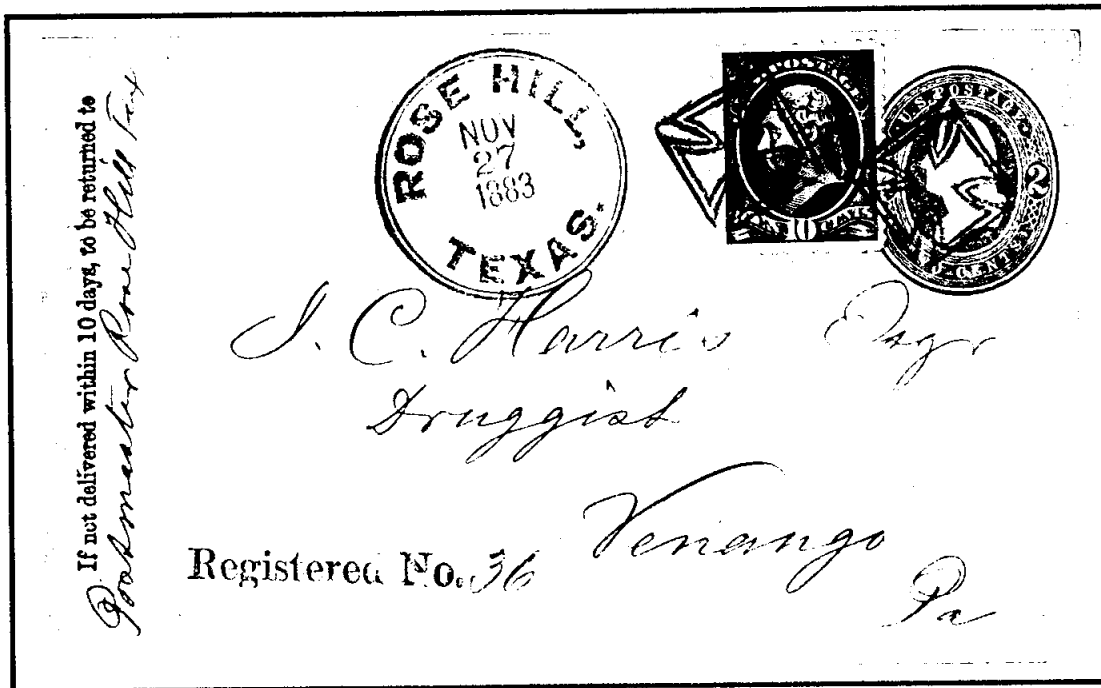 If not delivered within 10 days, to be returned to
Postmaster Rose Hill Tex
ROSE HILL,
NOV
27
1883
TEXAS.
U.S. POSTAGE
2
TWO CENTS
POSTAGE
10
J. C. Harris Esqr
Druggist
Venango
Pa
Registered No. 36